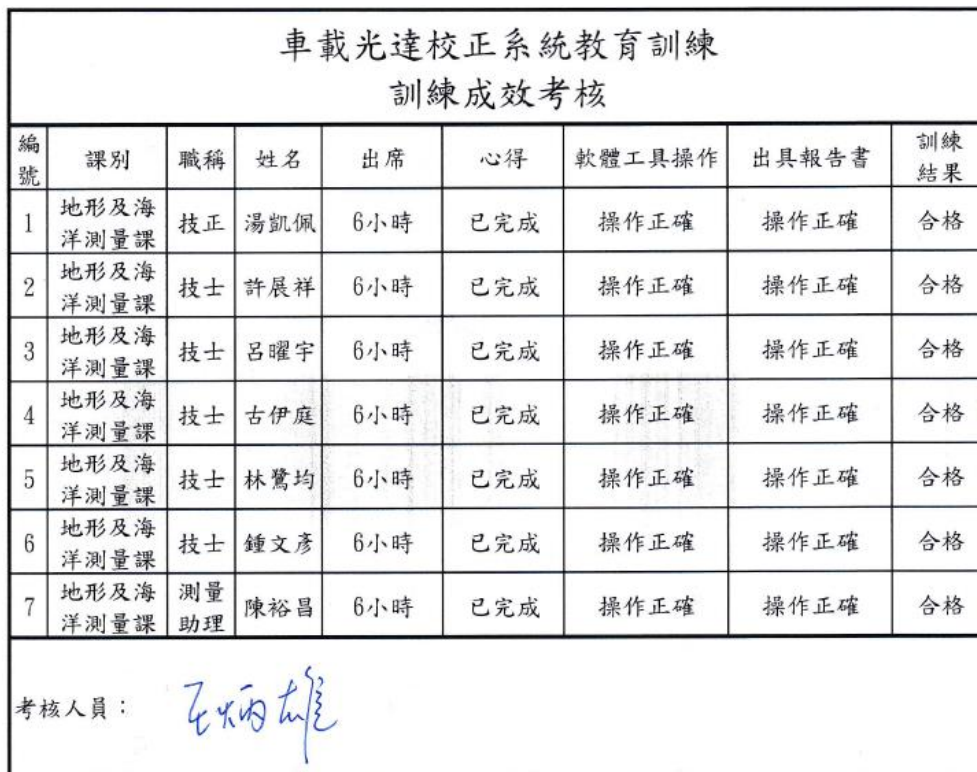 車載光達校正系統教育訓練
訓練成效考核
編號 課別 職稱 姓名 出席 心得 軟體工具操作 出具報告書 訓練結果
1 地形及海洋測量課 技正 湯凱佩 6小時 已完成 操作正確 操作正確 合格
2 地形及海洋測量課 技士 許展祥 6小時 已完成 操作正確 操作正確 合格
3 地形及海洋測量課 技士 呂曜宇 6小時 已完成 操作正確 操作正確 合格
4 地形及海洋測量課 技士 古伊庭 6小時 已完成 操作正確 操作正確 合格
5 地形及海洋測量課 技士 林鷺均 6小時 已完成 操作正確 操作正確 合格
6 地形及海洋測量課 技士 鍾文彥 6小時 已完成 操作正確 操作正確 合格
7 地形及海洋測量課 測量助理 陳裕昌 6小時 已完成 操作正確 操作正確 合格
考核人員：